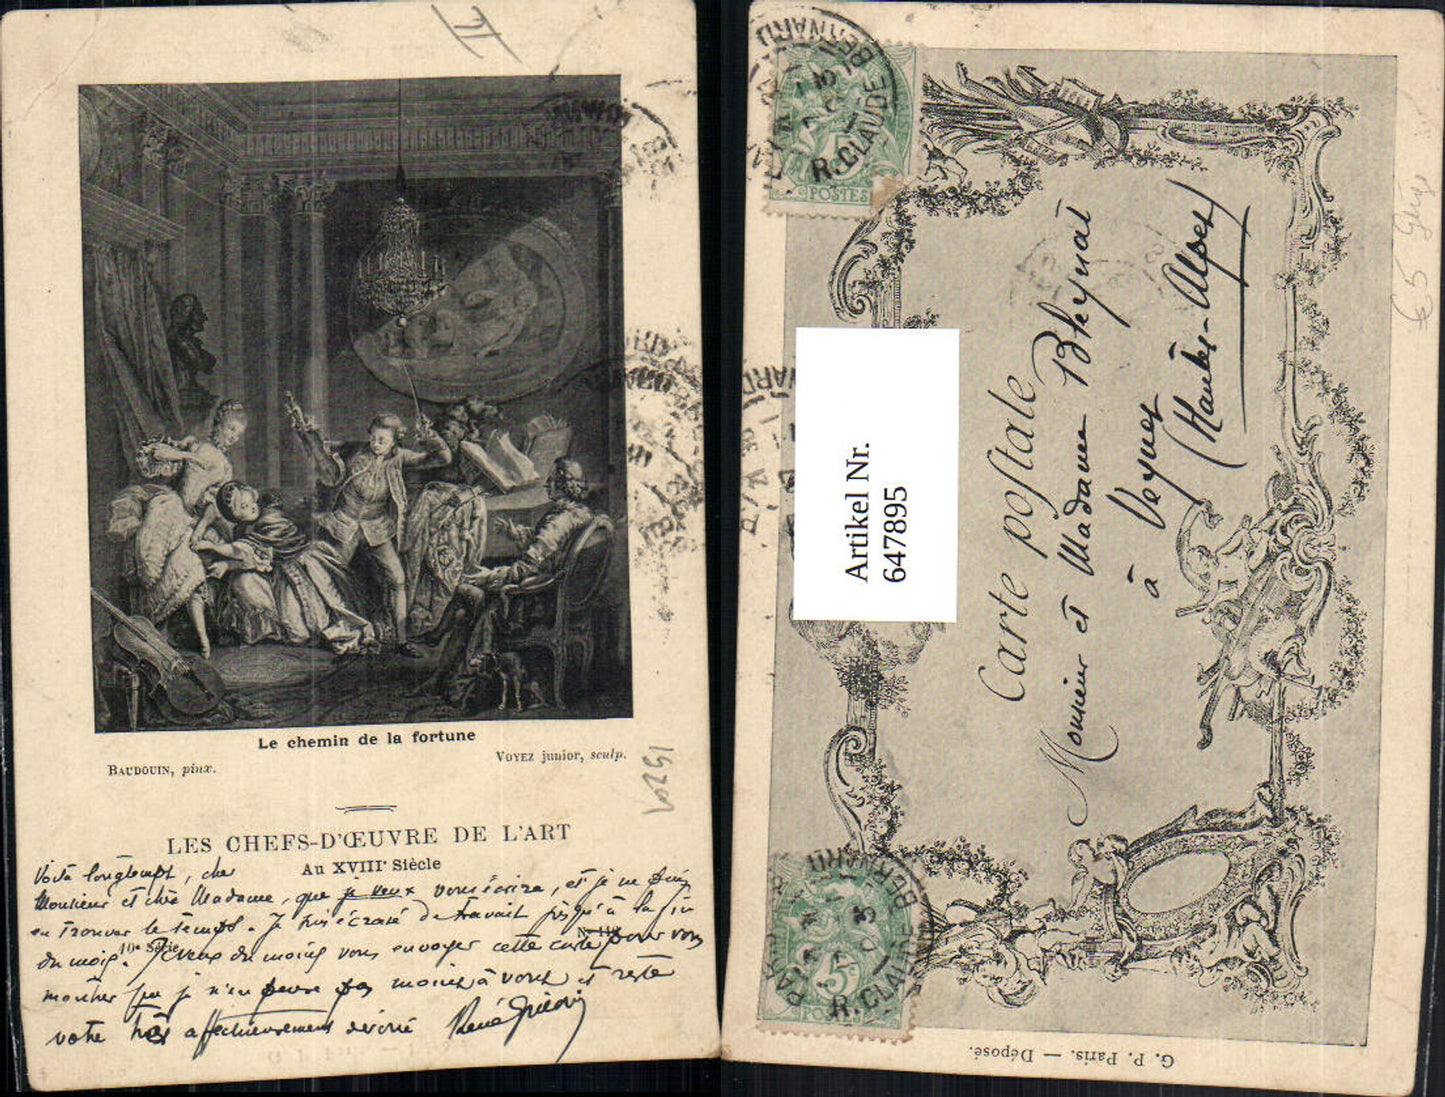 Le chemin de la fortune
BAUDOUIN, pinx.
VOYEZ junior, sculp.
LES CHEFS-D'ŒUVRE DE L'ART
Au XVIIIe Siècle
10e Série
Voilà longtemps, cher
Monsieur et chère Madame, que je veux vous écrire, et je ne puis
en trouver le temps. Je suis écrasé de travail jusqu'à la fin
du mois. Je veux du moins vous envoyer cette carte pour vous
montrer que je n'en pense pas moins à vous et reste
votre très affectueusement dévoué
15201
Carte postale
Monsieur et Madame Bleynat
à Veynes
(Hautes-Alpes)
Artikel Nr.
647895
R. CLAUDE BERNARD
POSTES
5c
R. CLAUDE BERNARD
PARIS
€5
G. P. Paris. — Déposé.